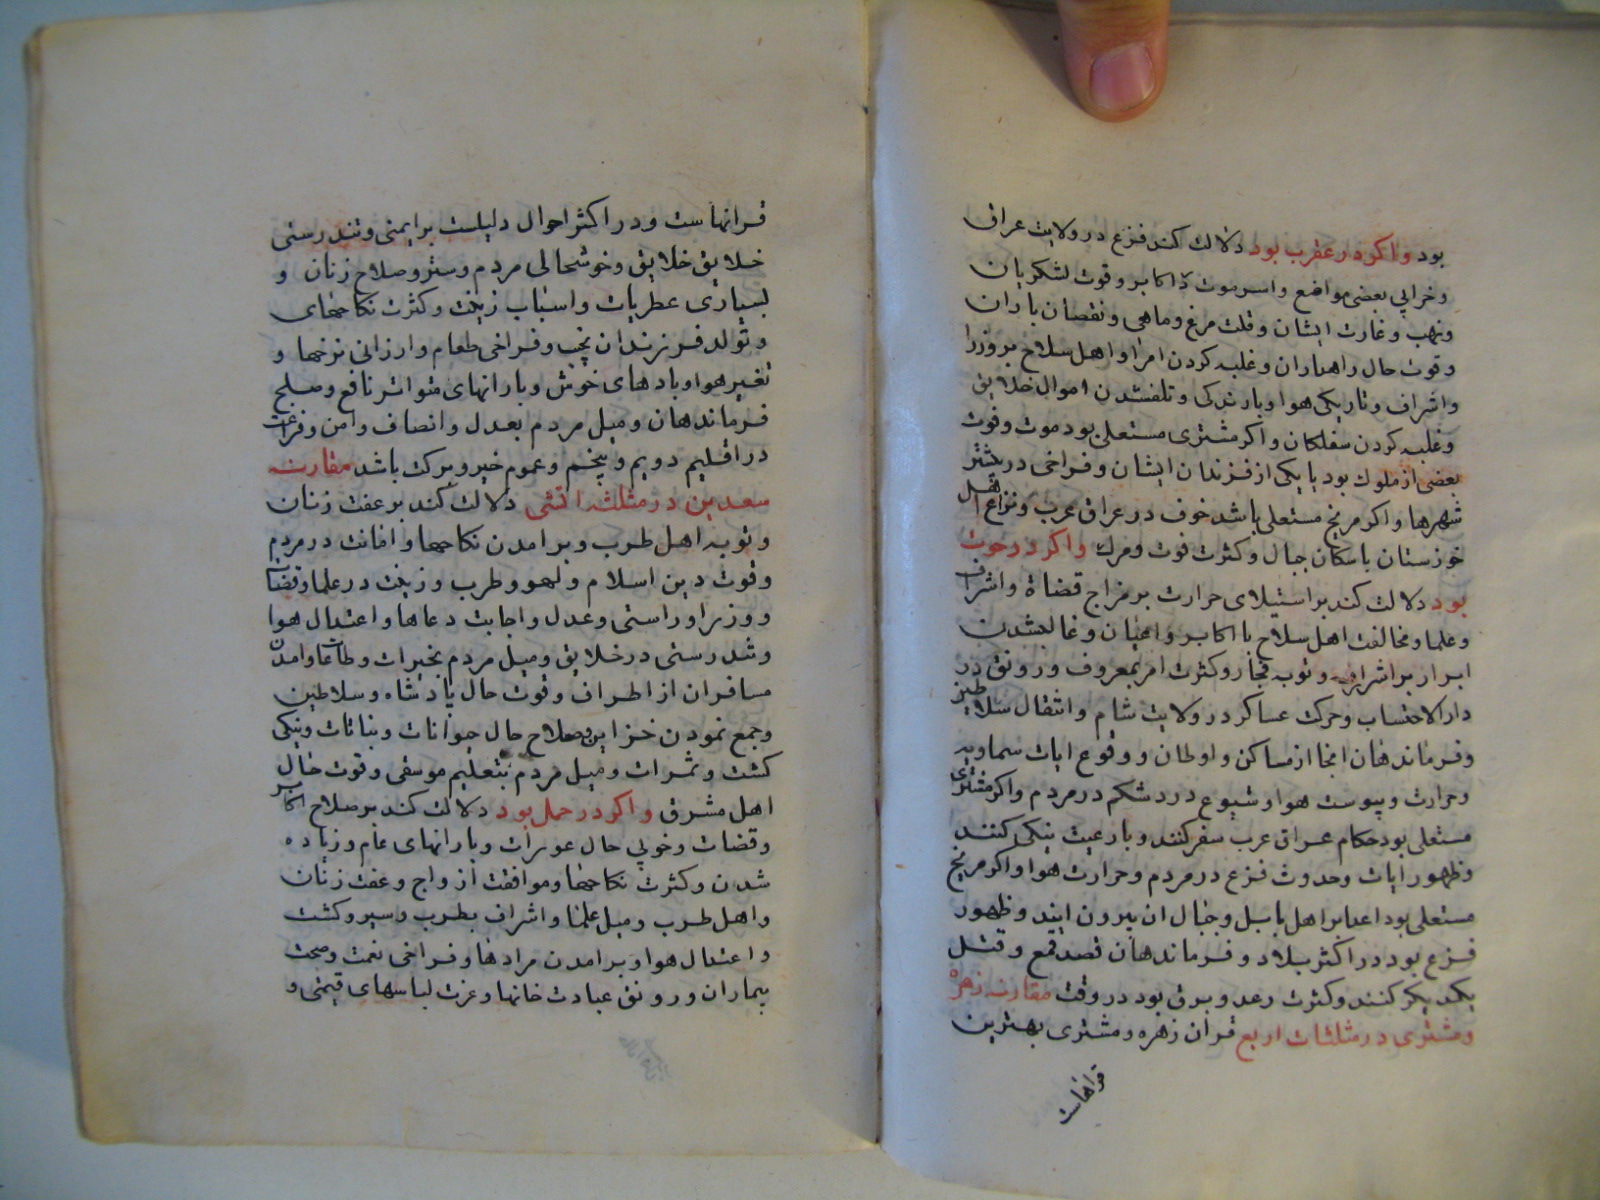 بود واکر در عقرب بود دلالت کند فزع در ولایت عراق
وخرابی بعضی مواضع واسر موت اکابر وقوت لشکریان
ونهب وغارت ایشان وقلت مرغ وماهی ونقصان باران
وقوت حال راهداران وغلبه کردن امرا واهل سلاح بر وزرا
واشراف وتاریکی هوا وبارندکی وتلف شدن اموال خلایق
وغلبه کردن سفلکان واکر مشتری مستعلی بود موت وفوت
بعضی از ملوک بود یا یکی از فرزندان ایشان وفراخی در بیشتر
شهرها واکر مریخ مستعلی باشد خوف در عراق عرب ونزاع اهل
خوزستان با سکان جبال وکثرت فوت ومرک واکر در حوت
بود دلالت کند بر استیلای حرارت بر مزاج قضاة واشراف
وعلما ومخالفت اهل سلاح با اکابر واعیان وغالب شدن
ابرار بر اشرار وتوبه فجار وکثرت امر بمعروف ورونق در
دار الاحتساب وحرکت عساکر در ولایت شام وانتقال سلاطین
وفرماندهان انجا از مساکن واوطان ووقوع ایات سماویه
وحرارت ویبوست هوا وشیوع درد شکم در مردم واکر مشتری
مستعلی بود حکام عراق عرب سفر کنند وبا رعیت نیکی کنند
وظهور ایات وحدوث فزع در مردم وحرارت هوا واکر مریخ
مستعلی بود اعدا بر اهل بابل وجبال ان بیرون ایند وظهور
فزع بود در اکثر بلاد وفرماندهان قصد قمع وقتل
یکدیکر کنند وکثرت رعد وبرق بود در وقت مقارنه زهره
ومشتری در مثلثات اربع قران زهره ومشتری بهترین
قرانهاست
قرانهاست ودر اکثر احوال دلیلست بر ایمنی وتندرستی
خلایق خلایق وخوشحالی مردم وستر وصلاح زنان و
بسیاری عطریات واسباب زینت وکثرت نکاحهای
وتولد فرزندان نجیب وفراخی طعام وارزانی نرخها و
تغیر هوا وبادهای خوش وبارانهای متواتر نافع وصلح
فرماندهان ومیل مردم بعدل وانصاف وامن وفراغت
در اقلیم دویم وپنجم وعموم خیر وبرکت باشد مقارنه
سعدین در مثلثه اتشی دلالت کند بر عفت زنان
وتوبه اهل طرب وبر امدن نکاحها وامانت در مردم
وقوت دین اسلام ولهو وطرب وزینت در علما وقضات
ووزرا وراستی وعدل واجابت دعاها واعتدال هوا
وتندرستی در خلایق ومیل مردم بخیرات وطاعات وامدن
مسافران از اطراف وقوت حال پادشاه وسلاطین
وجمع نمودن خزاین وصلاح حال حیوانات ونباتات ونیکی
کشت وثمرات ومیل مردم بتعلیم موسقی وقوت حال
اهل مشرق واکر در حمل بود دلالت کند بر صلاح اکابر
وقضات وخوبی حال عورات وبارانهای عام وزیاده
شدن وکثرت نکاحها وموافقت ازواج وعفت زنان
واهل طرب ومیل علما واشراف بطرب وسیر وکشت
واعتدال هوا وبر امدن مرادها وفراخی نعمت وصحت
بیماران ورونق عبادت خانها وعزت لباسهای قیمتی و